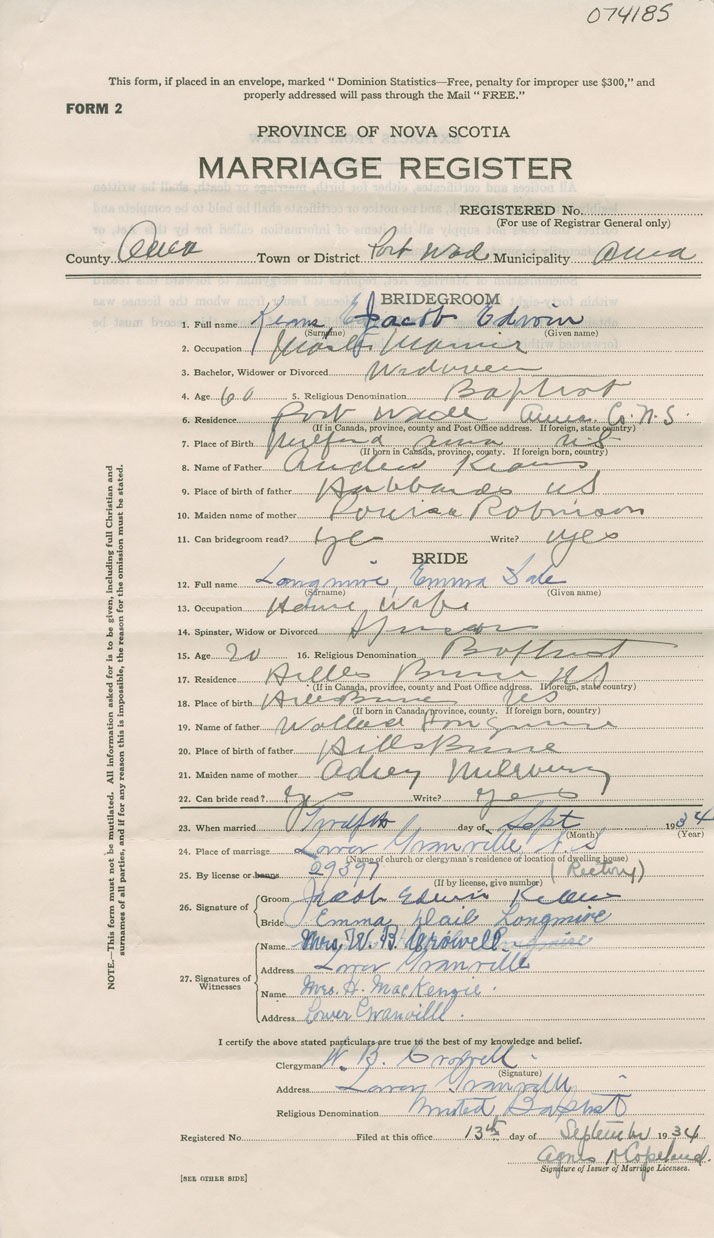 074185
This form, if placed in an envelope, marked “ Dominion Statistics—Free, penalty for improper use $300,” and
properly addressed will pass through the Mail “ FREE.”
FORM 2
PROVINCE OF NOVA SCOTIA
MARRIAGE REGISTER
REGISTERED No.
(For use of Registrar General only)
County Anna Town or District Port Wade Municipality Anna
BRIDEGROOM
1. Full name Jacob Edwin
(Surname) (Given name)
2. Occupation Master Marnir
3. Bachelor, Widower or Divorced Widower
4. Age 60 5. Religious Denomination Baptist
6. Residence Port Wade Anna. Co. N. S.
(If in Canada, province, county and Post Office address. If foreign, state country)
7. Place of Birth Milford Anna NS
(If born in Canada, province, county. If foreign born, country)
8. Name of Father Andrew Keans
9. Place of birth of father Hubbards NS
10. Maiden name of mother Louisa Robinson
11. Can bridegroom read? yes Write? yes
BRIDE
12. Full name Longmire, Emma
(Surname) (Given name)
13. Occupation House Wife
14. Spinster, Widow or Divorced
15. Age 20 16. Religious Denomination Baptist
17. Residence NS
(If in Canada, province, county and Post Office address. If foreign, state country)
18. Place of birth NS
(If born in Canada, province, county. If foreign born, country)
19. Name of father Wallace Longmire
20. Place of birth of father
21. Maiden name of mother Milbury
22. Can bride read? yes Write? yes
23. When married Twelfth day of Sept 1934
(Month) (Year)
24. Place of marriage Lower Granville, N. S
(Name of church or clergyman's residence or location of dwelling house)
25. By license or banns 29397 (Rectory)
(If by license, give number)
26. Signature of Groom Jacob Edwin
Bride Emma Longmire
Name Mrs. W. B. Crowell
Address Lower Granville
27. Signatures of Witnesses
Name Mrs. H. MacKenzie.
Address Lower Granville.
I certify the above stated particulars are true to the best of my knowledge and belief.
Clergyman W. B. Crowell
(Signature)
Address Lower Granville
Religious Denomination United Baptist
Registered No. Filed at this office 13th day of September 1934
Agnes R Copeland.
Signature of Issuer of Marriage Licenses.
[SEE OTHER SIDE]
NOTE.—This form must not be mutilated. All information asked for is to be given, including full Christian and
surnames of all parties, and if for any reason this is impossible, the reason for the omission must be stated.